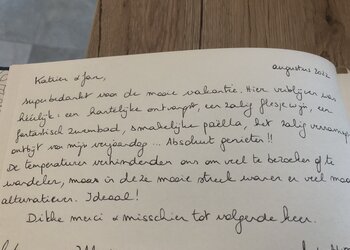 augustus 2022
Katrien & Jan,
superbedankt voor de mooie vakantie. Hier verblijven was
heerlijk: een hartelijke ontvangst, een zalig flesje wijn, een
fantastisch zwembad, smakelijke paëlla, het zalig verrassings
ontbijt van mijn verjaardag ... Absoluut genieten!!
De temperaturen verhinderden ons om veel te bezoeken of te
wandelen, maar in deze mooie streek waren er veel mooie
alternatieven. Ideaal!
Dikke merci & misschien tot volgende keer.